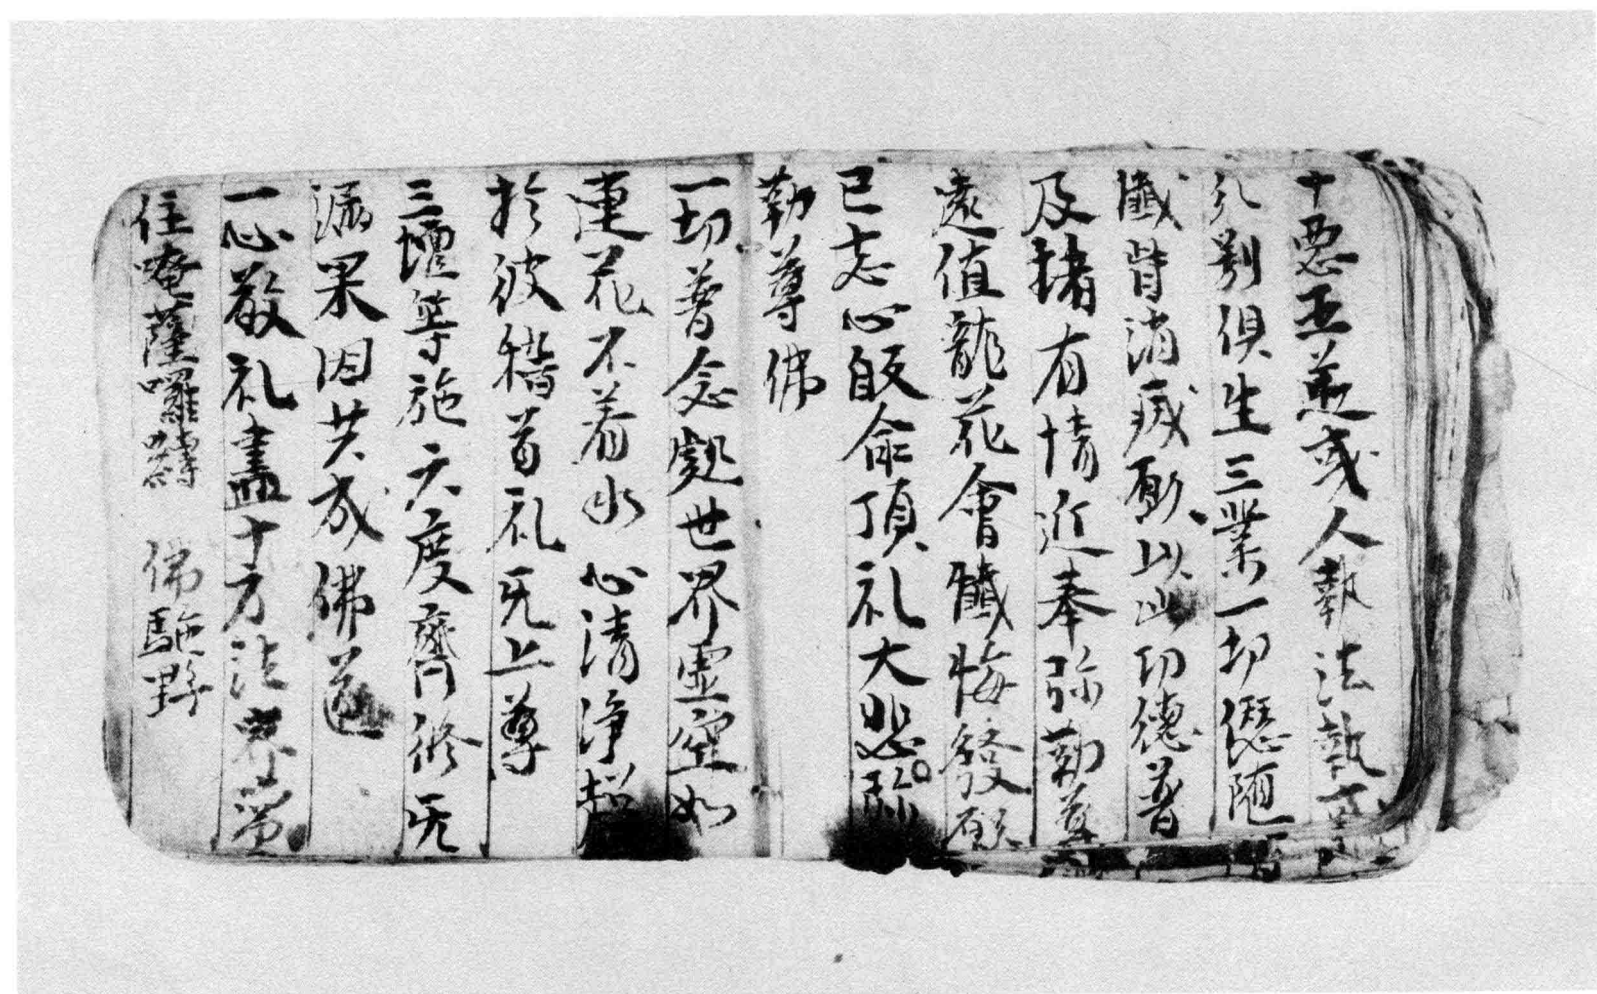 十惡五逆或人執法執
分別俱生三業一切愆随
懴皆消滅願以此功德普
及諸有情近奉弥勒尊
遠值龍花會懴悔發願
已志心皈命頂礼大悲弥
勒尊佛
一切普念處世界虛空如
連花不着水心清淨超
於彼稽首礼无上尊
三壇等施六度齊修无
漏果因共成佛道
一心敬礼盡十方法界常
住唵薩囉嚩 佛馱野